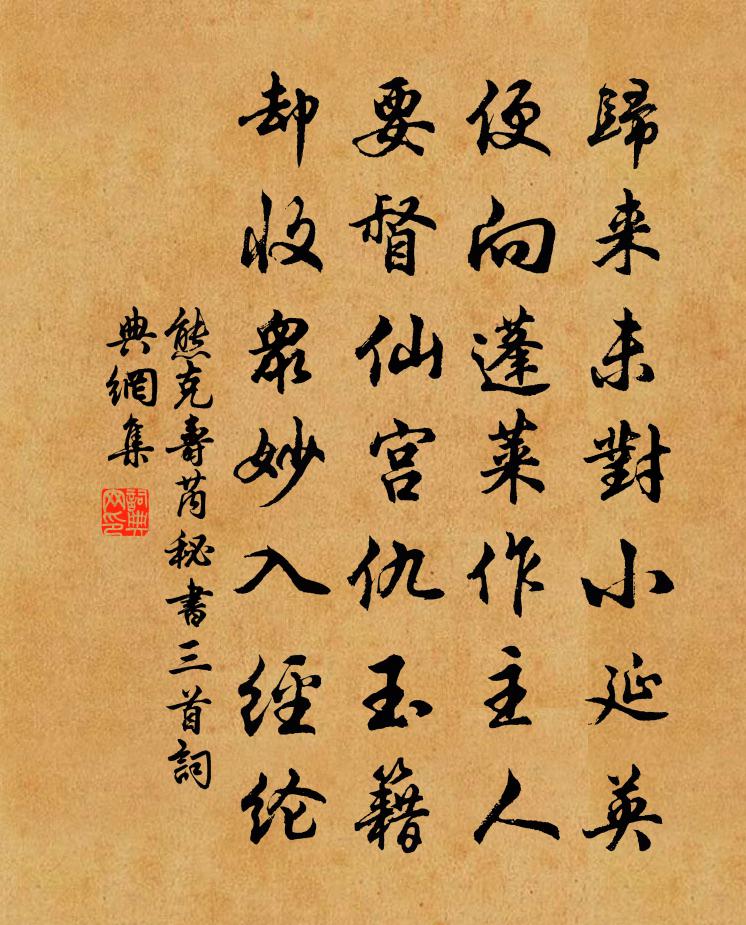 歸来未對小延英
便向蓬萊作主人
要督仙宫仇玉籍
却收眾妙入經纶
熊克壽芮秘書三首詞
典網集
詞典
网印